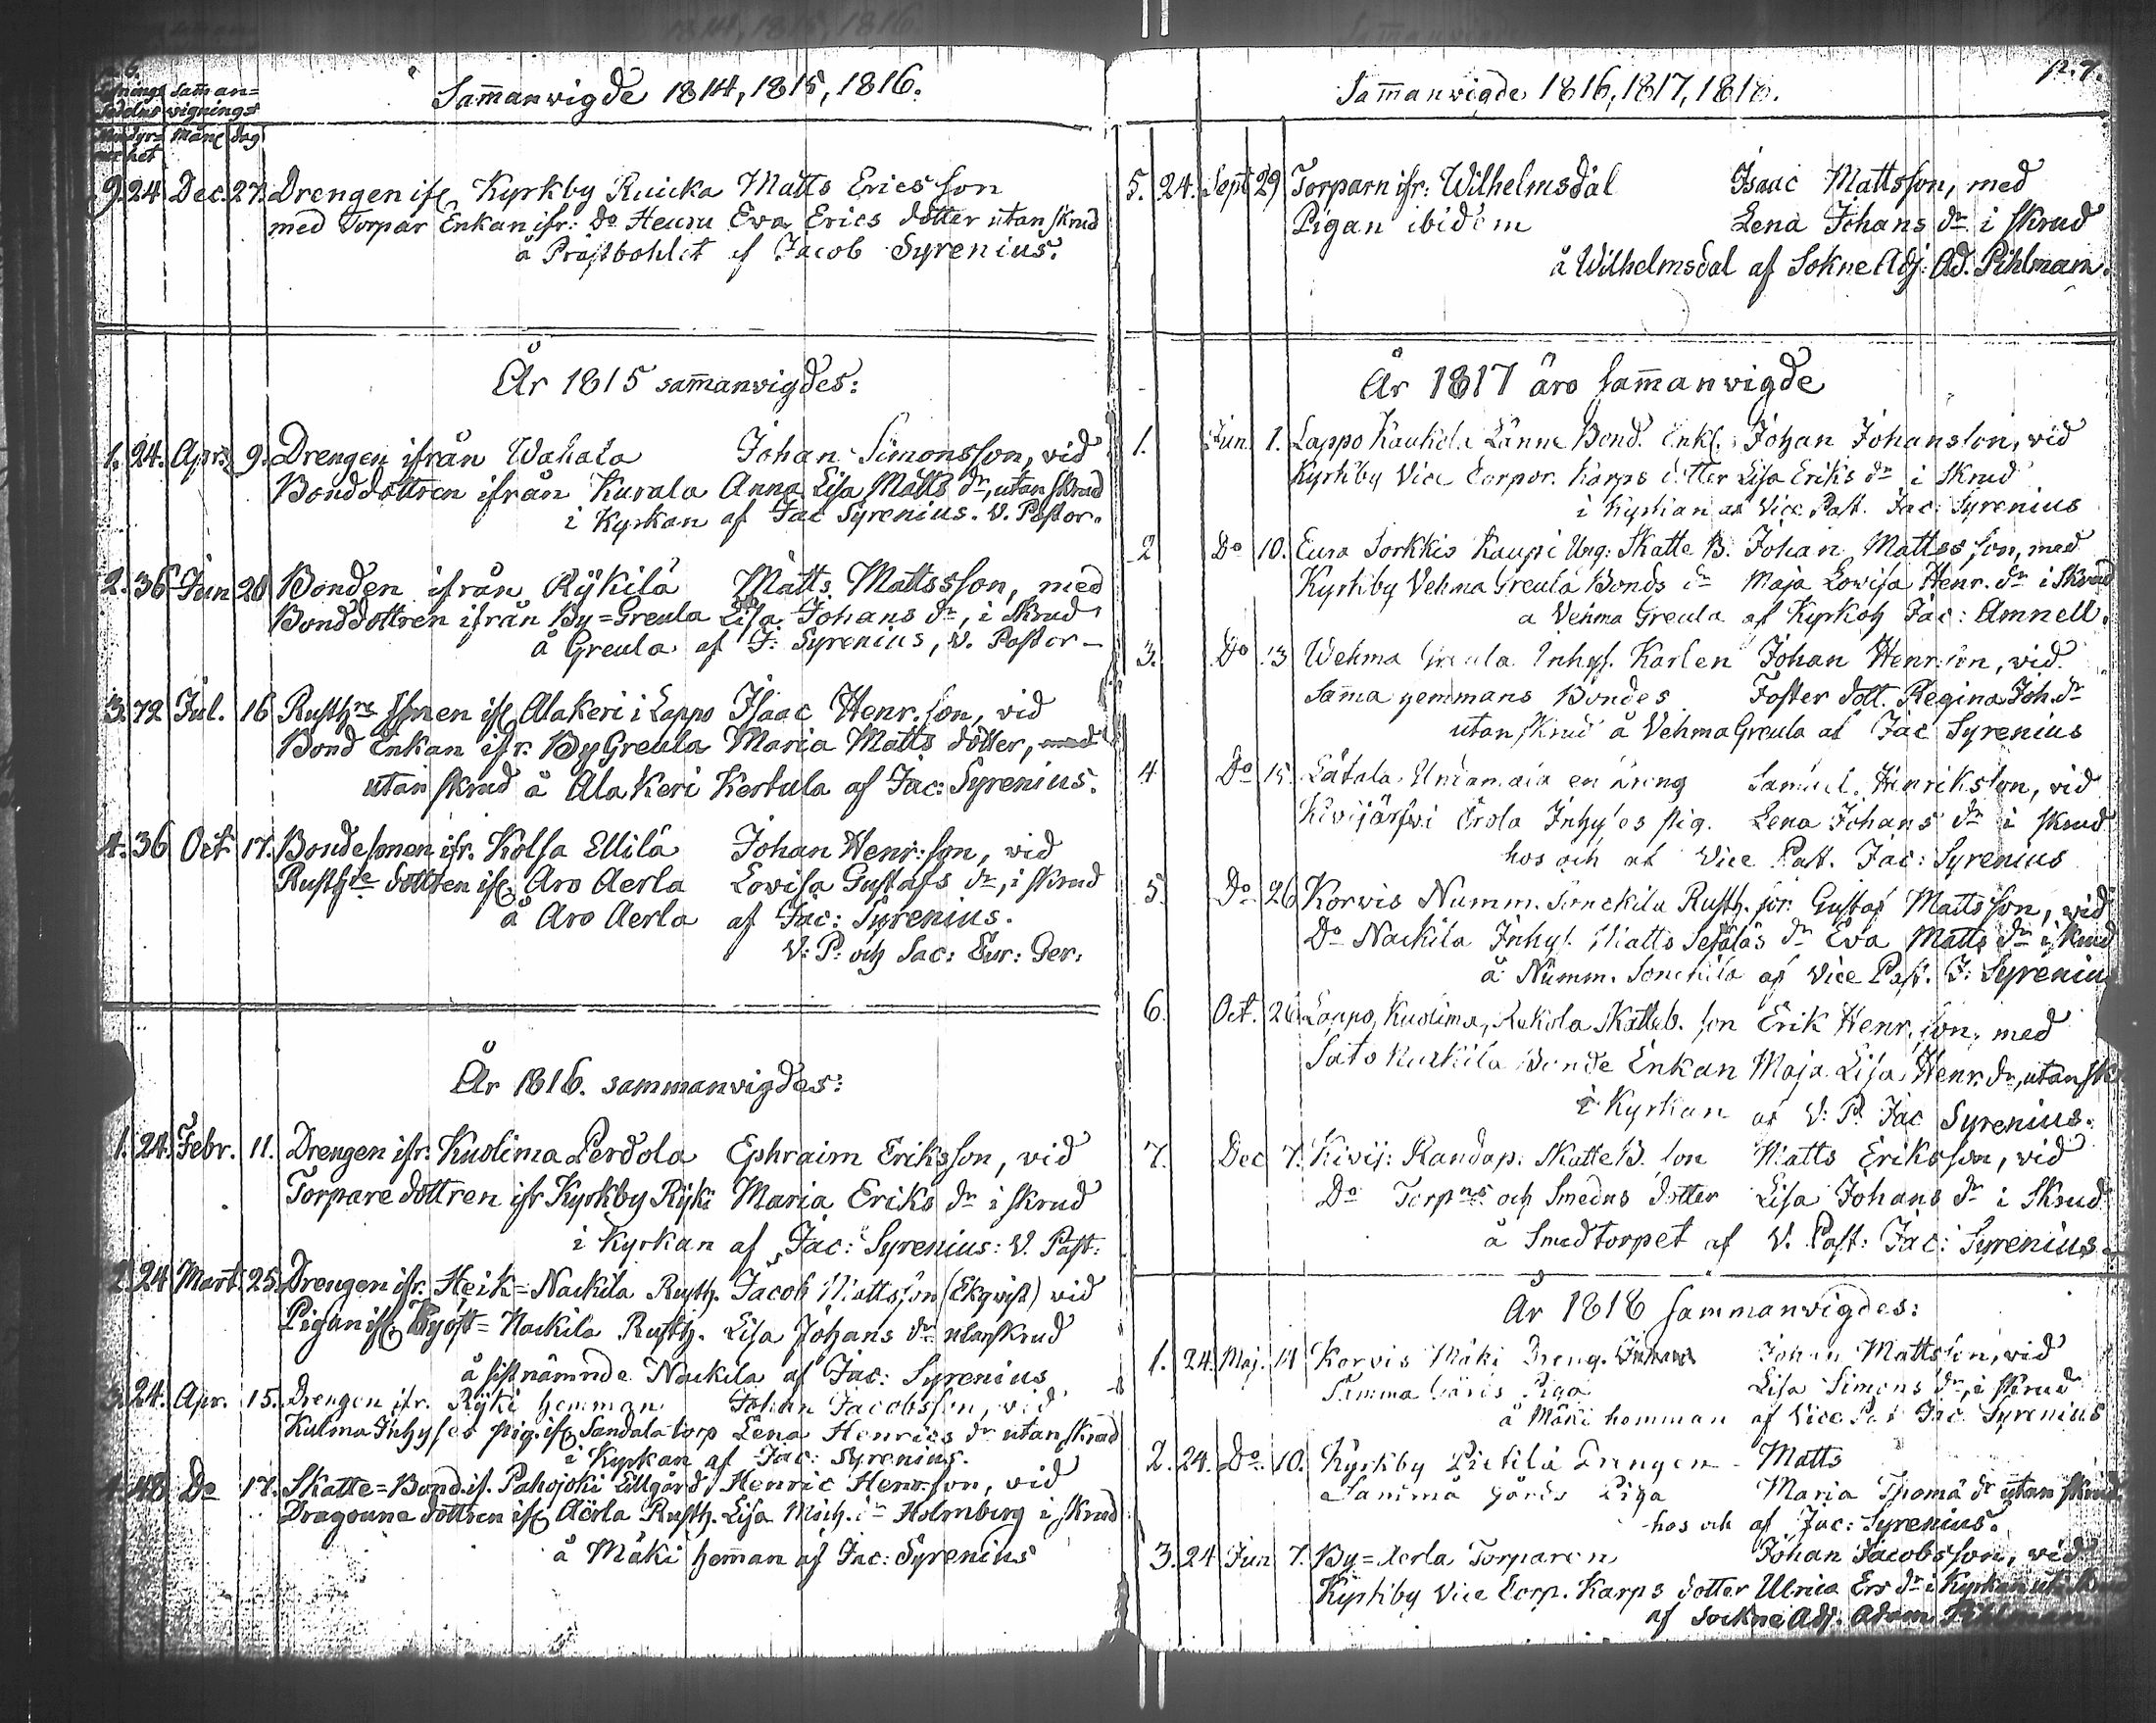 Sam̃anwigde 1814, 1815, 1816.
Sam̃an=
wignings
Mån dag
9. 24 Dec. 27. Drengen ifr Kyrkby Ruicka Matts Ericsson
med Torpar Enkan ifr: Do Heuru Eva Erics dotter utan skrud
å Prästbohlet af Jacob Syrenius.
År 1815 sam̃anwigdes:
1. 24. Apr. 9. Drengen ifrån Wahala Johan Simonsson, vid
Bonddottren ifrån Kurala Anna Lisa Matts dr, utan skrud
i Kyrkan af Jac Syrenius. V. Pastor.
2. 36 Jun 28 Bonden ifrån Rÿkilä Matts Mattsson, med
Bonddottren ifrån By=Greula Lisa Johans dr, i skrud
å Greula af J: Syrenius, V. Pastor—
3. 72 Jul. 16 Rusthrs sonen ifr Alakeri i Lappo Isaac Henr. son, vid
Bond Enkan ifr. By Greula Maria Matts dotter, med
utan skrud å Alakeri Kertula af Jac: Syrenius.
4. 36 Oct 17. Bondesonen ifr. Kolsa Ellilä Johan Henr: son, vid
Rusthre dottren ifr Aro Aerla Lovisa Gustafs dr, i skrud
å Aro Aerla af Jac: Syrenius.
V: P: och Sac: Eur: Ger:
År 1816. sammanwigdes:
1. 24. Febr. 11. Drengen ifr: Kuolima Perdola Ephraim Eriksson, vid
Torpare dottren ifr Kyrkby Rÿki Maria Eriks dr i skrud
i Kyrkan af Jac: Syrenius: V. Past:
2. 24 Mart. 25. Drengen ifr. Heik=Nackila Rusth. Jacob Mattsson (Ekqvist) vid
Pigan ifr Kyöst=Nackila Rusth. Lisa Johans dr utan skrud
å sistnämnde Nackila af Jac: Syrenius
3. 24. Apr. 15. Drengen ifr. Rÿki hemman Johan Jacobsson, vid
Kulma Inhyses pig. ifr Sandala torp Lena Henrics dr utan skrud
i Kyrkan af Jac: Syrenius.
4. 48 Do 17. Skatte=Bond. if. Pahojoki Lillgård Henric Henr.son, vid
Dragoune dottren ifr Aerla Rusth. Lisa Mich. dr Holmberg i skrud
å Mäki hem̃an af Jac: Syrenius
Sam̃anwigde 1816, 1817, 1818.
p. 7.
5. 24. Sept 29 Torparn ifr: Wilhelmsdal Isaac Mattsson, med
Pigan ibidem Lena Johans dr i skrud
å Wilhelmsdal af SokneAdj: Ad. Pihlman.
År 1817 äro sam̃anwigde
1. Jun. 1. Lappo Kaukola Länne Bond. Enkl. Johan Johansson, vid
Kyrkby Vice Corpor. Karps dotter Lisa Eriks dr i skrud
i Kyrkan af Vice Past. Jac: Syrenius
2 Do 10. Eura Sorkkis Kaupi Ung: Skatte B. Johan Mattsson, med
Kyrkby Vehma Greula Bonds dr Maja Lowisa Henr. dr i skrud
a Vehma Greula af Kyrkoh Jac: Amnell.
3. Do 13 Wehma Greula Inhys. Karlen Johan Henr. son, vid
Sam̃a hemmans Bondes Foster dott. Regina Joh. dr
utan skrud å Vehma Greula af Jac Syrenius
4 Do 15. Lätala dreng Samuel Hinriksson, vid
Kivijärfvi Erola Inhyses pig. Lena Johans dr i skrud
hos och af Vice Past. Jac: Syrenius
5. Do 26 Korvis Numm. Sonckila Rusth. son Gustaf Mattsson, vid
Do Nackila Inhys. Matts dr Eva Matts dr i skrud
å Numm. Sonckila af Vice Past. J: Syrenius
6. Oct. 26 Lappo, Kuolima, Rekola Skatteb. son Erik Henr. son, med
Säto Kurkila Bonde Enkan Maja Lisa Henr: dr, utan sk
i Kyrkan af V: P. Jac Syrenius.
7. Dec 7. Kivij: Kandap: Skatte B. son Matts Eriksson, vid
Do Torpns och Smedns dotter Lisa Johans dr i skrud
å Smedtorpet af V. Past: Jac: Syrenius
År 1818 sammanwigdes:
1. 24. Maj. 11 Korvis Mäki Dreng. Johan Mattsson, vid
Samma Gårds Piga Lisa Simons dr, i skrud
å Mäki hemman af Vice Pas Jac Syrenius
2. 24. Do. 10. Kyrkby Pietilä Drengen Matts
Samma gårds Piga Maria Thomä dr utan skrud
hos och af Jac: Syrenius.
3. 24 Jun 7. By=Aerla Torparen Johan Jacobsson, vid
Kyrkby Vice Corp. Karps dotter Ulrica Ers dr i Kyrkan
af SockneAdj. Adam Pihlman